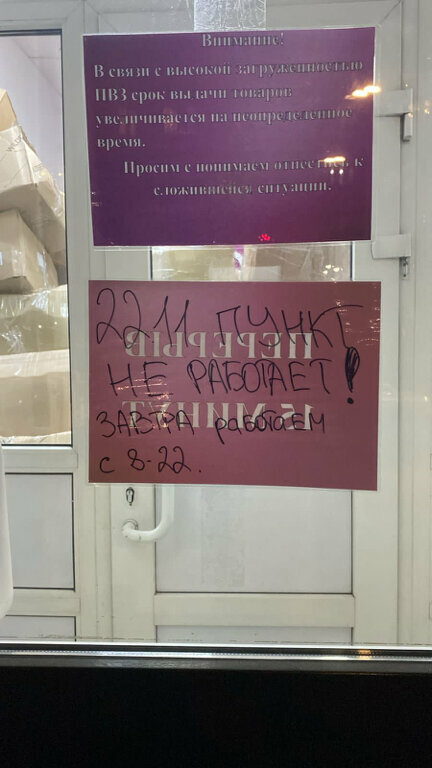 Внимание!
В связи с высокой загруженностью
ПВЗ срок выдачи товаров
увеличивается на неопределенное
время.
Просим с понимаем отнестись к
сложившейся ситуации.
2211 ПУНКТ
ПЕРЕРЫВ
НЕ РАБОТАЕТ!
15 МИНУТ
ЗАВТРА работаем
с 8-22.